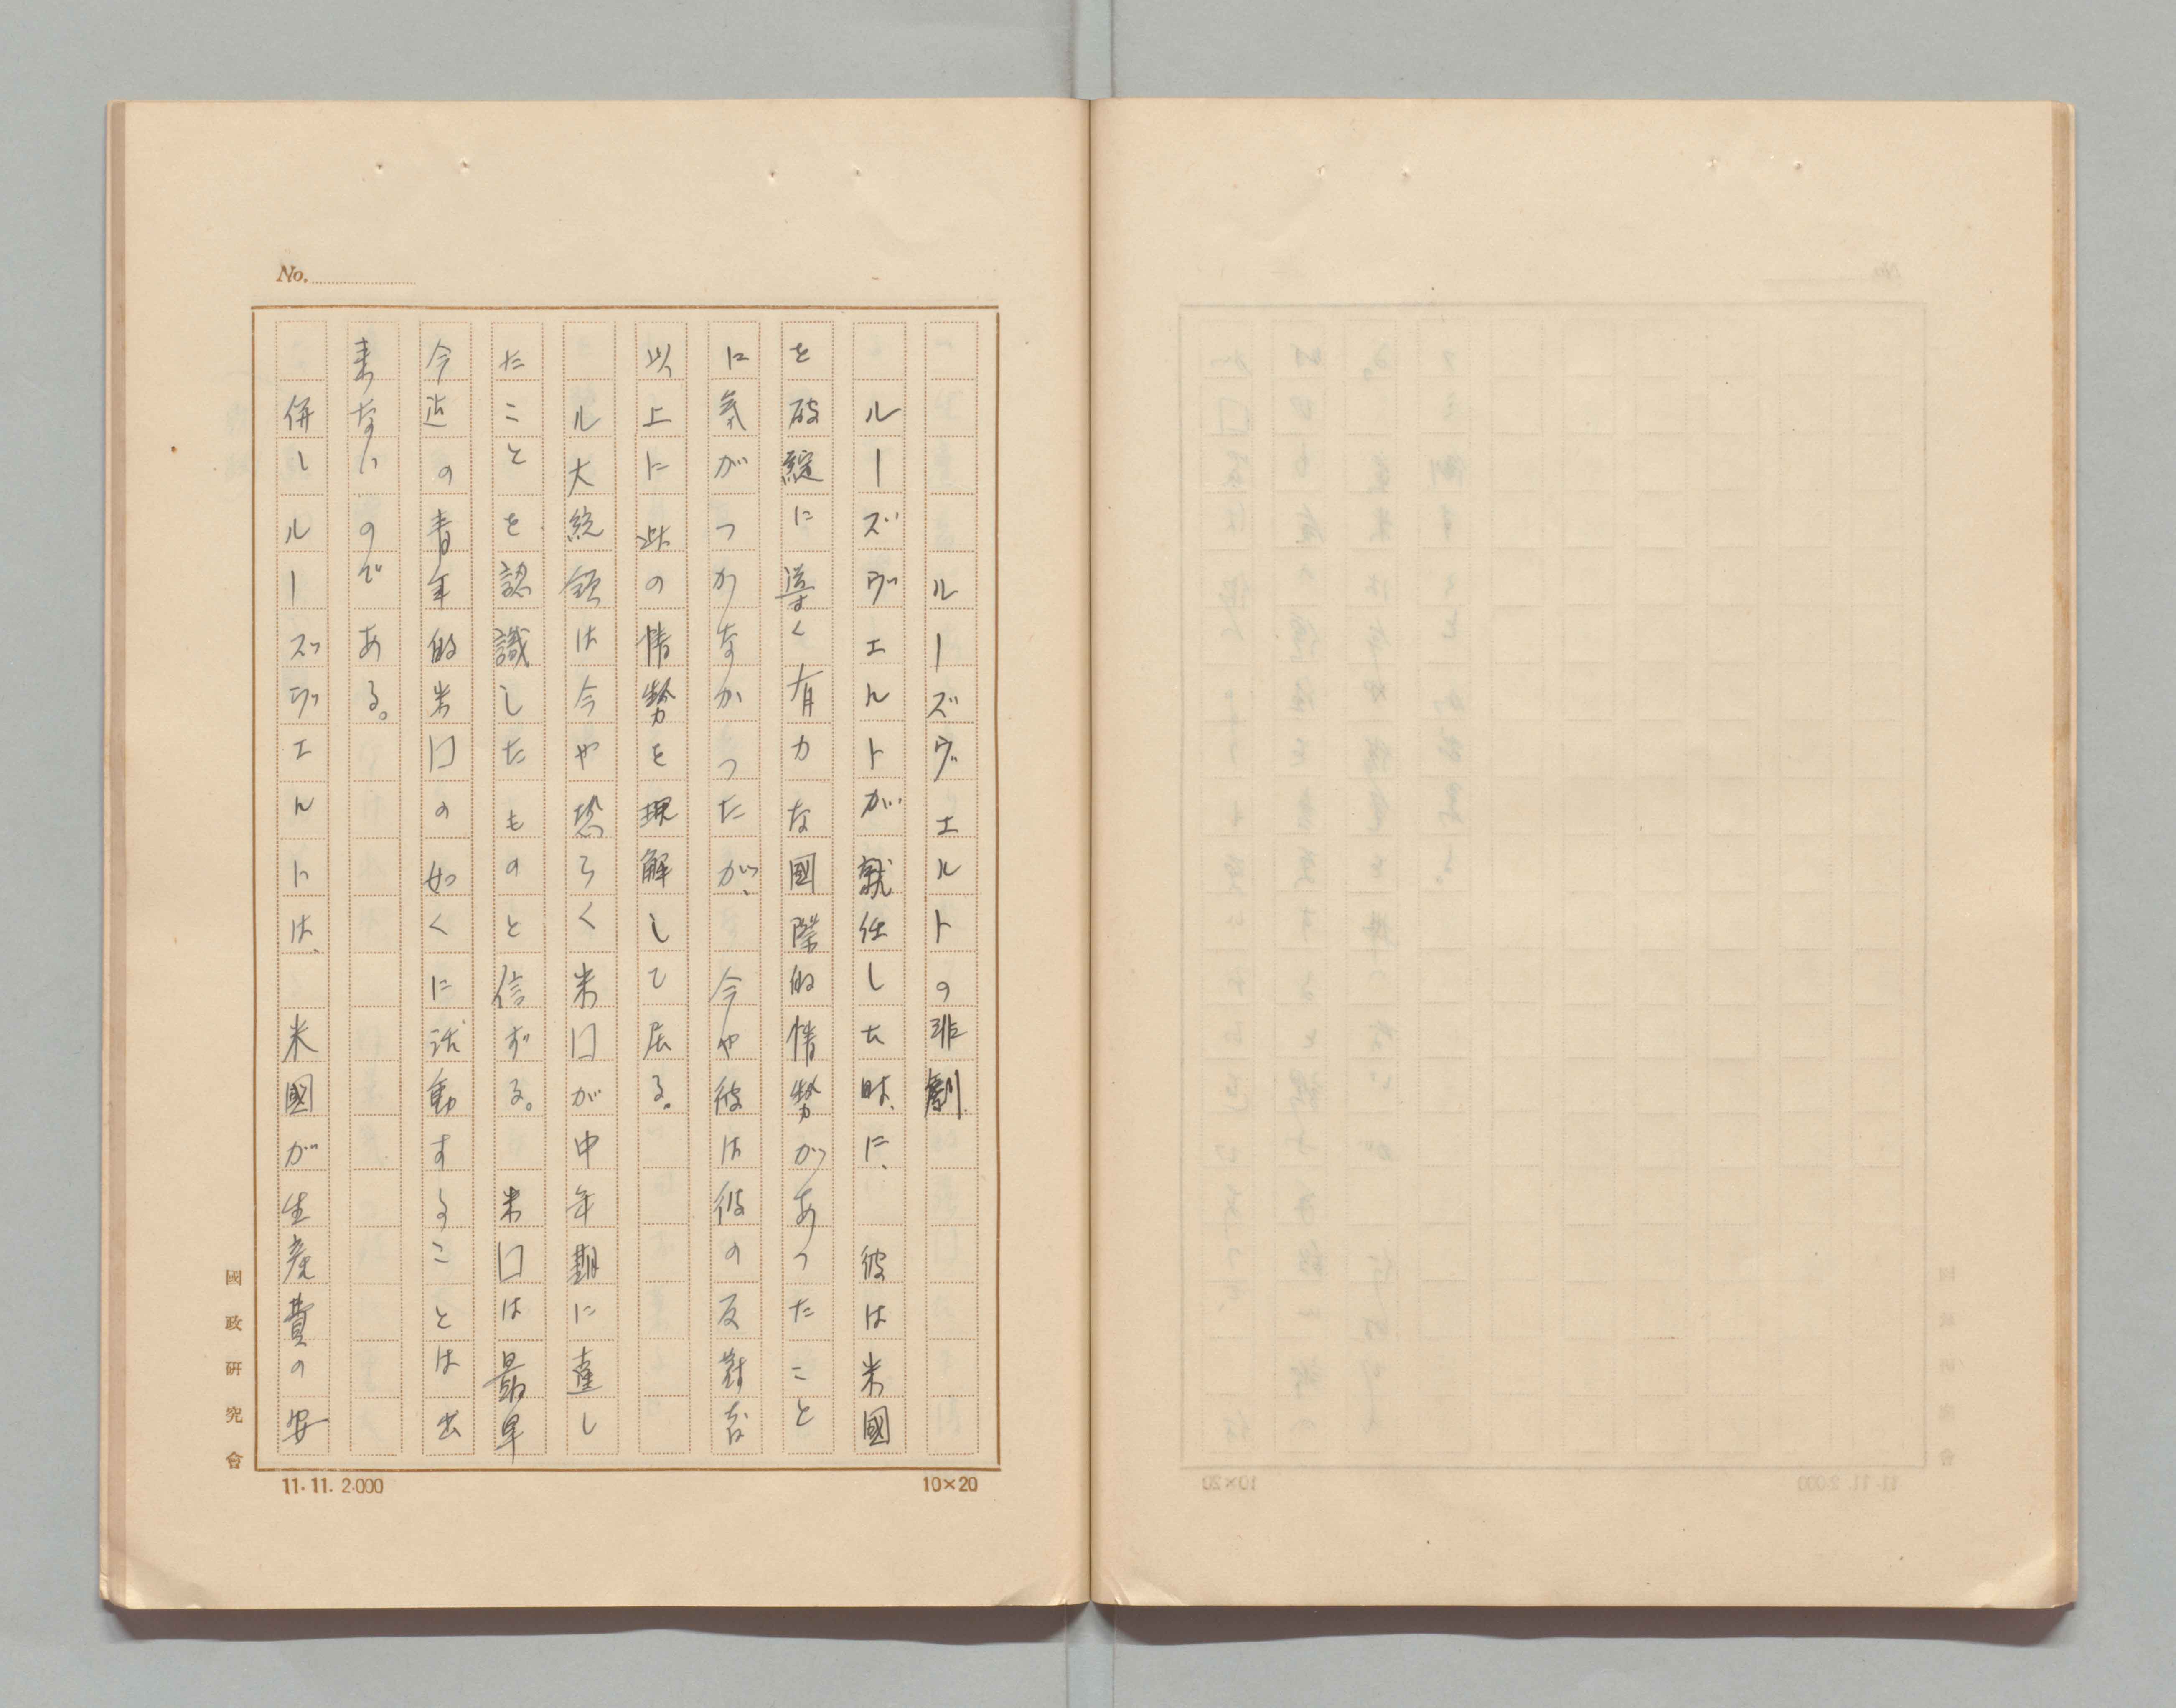 No.
ルーズヴェルトの悲劇
ルーズヴェルトが就任した時に、彼は米國
を破綻に導く有力な國際的情勢があったこと
に気がつかなかったが、今や彼は彼の反対者
以上に此の情勢を理解して居る。
ル大統領は今や恐らく米囗が中年期に達し
たことを認識したものと信ずる。米囗は最早
今迄の青年的米囗の如くに活動することは出
来ないのである。
併しルーズヴェルトは、米國が生産費の安
國政研究會
11.11.2.000
10×20